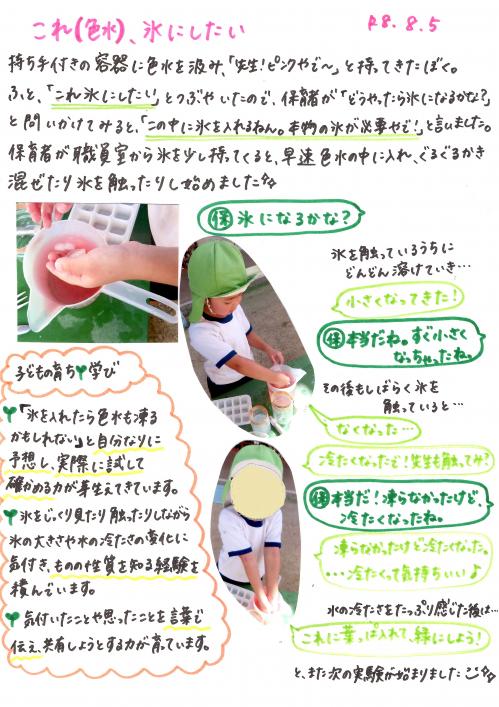 これ(色水)、氷にしたい
R8.8.5
持ち手付きの容器に色水を汲み、「先生!ピンクやで〜」と持ってきたぼく。
ふと、「これ氷にしたい」とつぶやいたので、保育者が「どうやったら氷になるかな?」
と問いかけてみると、「この中に氷を入れるねん。本物の氷が必要やで!」と言いました。
保育者が職員室から氷を少し持ってくると、早速色水の中に入れ、ぐるぐるかき
混ぜたり氷を触ったりし始めました
保 氷になるかな?
氷を触っているうちに
どんどん溶けていき…
小さくなってきた!
保 本当だね。すぐ小さく
なっちゃったね。
その後もしばらく氷を
触っていると…
なくなった…
冷たくなったで!先生も触ってみ?
保 本当だ!凍らなかったけど、
冷たくなったね。
凍らなかったけど冷たくなった。
…冷たくって気持ちいい♪
氷の冷たさをたっぷり感じた後は…
これに葉っぱ入れて、緑にしよう!
と、また次の実験が始まりました
子どもの育ち 学び
「氷を入れたら色水も凍る
かもしれない」と自分なりに
予想し、実際に試して
確かめる力が芽生えてきています。
氷をじっくり見たり触ったりしながら
氷の大きさや水の冷たさの変化に
気付き、ものの性質を知る経験を
積んでいます。
気付いたことや思ったことを言葉で
伝え、共有しようとする力が育っています。